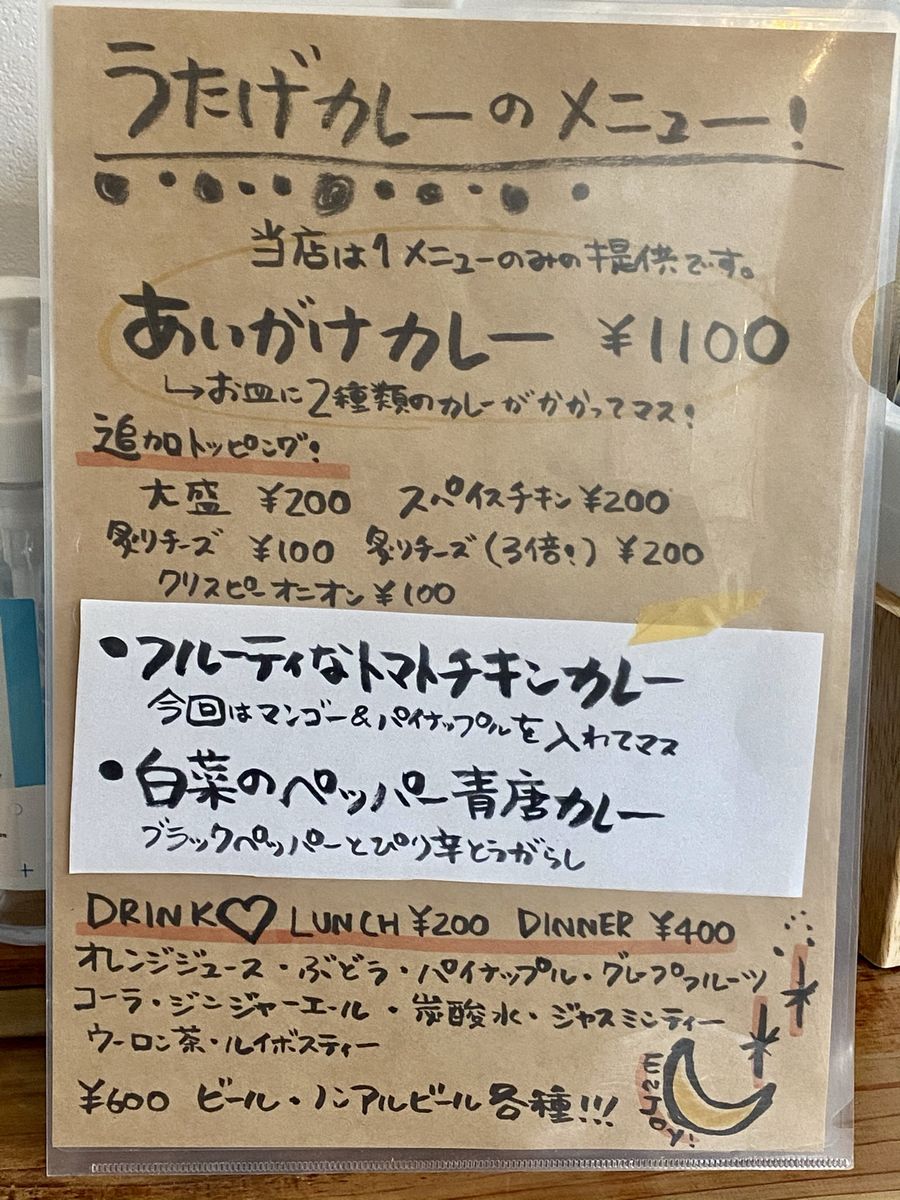 うたげカレーのメニュー！
当店は1メニューのみの提供です。
あいがけカレー ¥1100
↳お皿に2種類のカレーがかかってマス！
追加トッピング！
大盛 ¥200 スパイスチキン ¥200
炙りチーズ ¥100 炙りチーズ(3倍！) ¥200
クリスピーオニオン ¥100
・フルーティなトマトチキンカレー
今回はマンゴー&パイナップルを入れてマス
・白菜のペッパー青唐カレー
ブラックペッパーとぴり辛とうがらし
DRINK♡ LUNCH ¥200 DINNER ¥400
オレンジジュース・ぶどう・パイナップル・グレープフルーツ
コーラ・ジンジャーエール・炭酸水・ジャスミンティー
ウーロン茶・ルイボスティー
¥600 ビール・ノンアルビール各種!!!